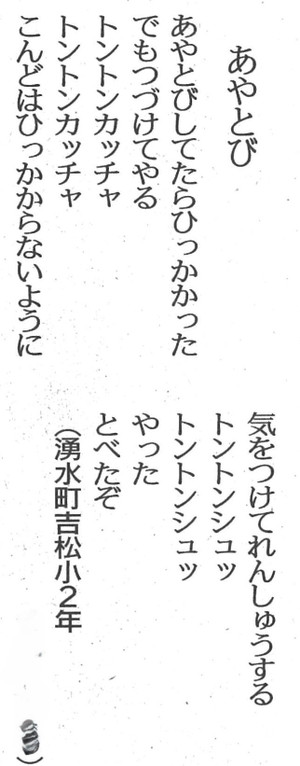 あやとび
あやとびしてたらひっかかった
でもつづけてやる
トントンカッチャ
トントンカッチャ
こんどはひっかからないように
気をつけてれんしゅうする
トントンシュッ
トントンシュッ
やった
とべたぞ
（湧水町吉松小２年　）